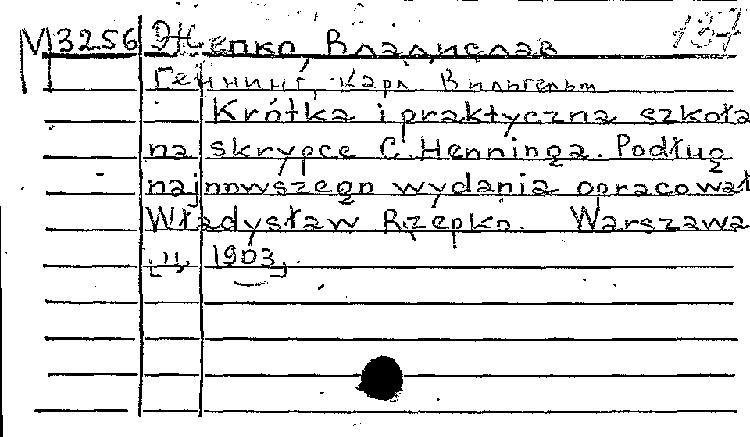 М3256 Жепко, Владислав 137
Геннинг, Карл Вильгельм
Krótka i praktyczna szkoła
na skrypce C. Henninga. Podług
najnowszego wydania opracował
Władysław Rzepko. Warszawa
[ц, 1903]